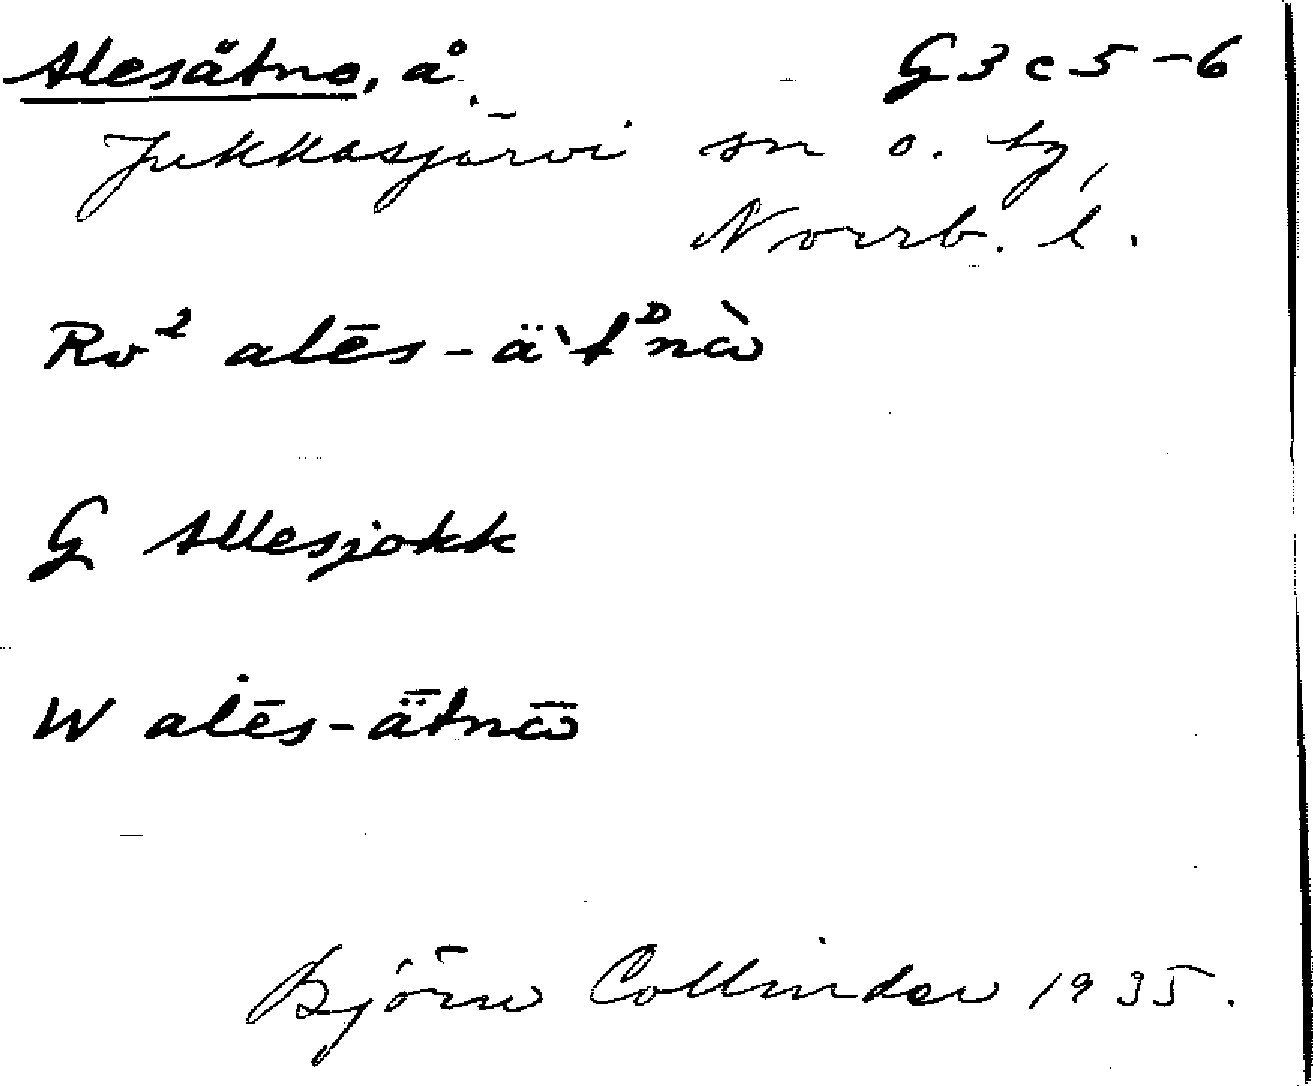 Alesätno, å. G 3 c 5-6
Jukkasjärvi sn o. by,
Norrb. l.
Rv² alēs-ä`tᴰnὼ
G Allesjokk
W alēs-ǟtnω̄
Björn Collinder 1935.